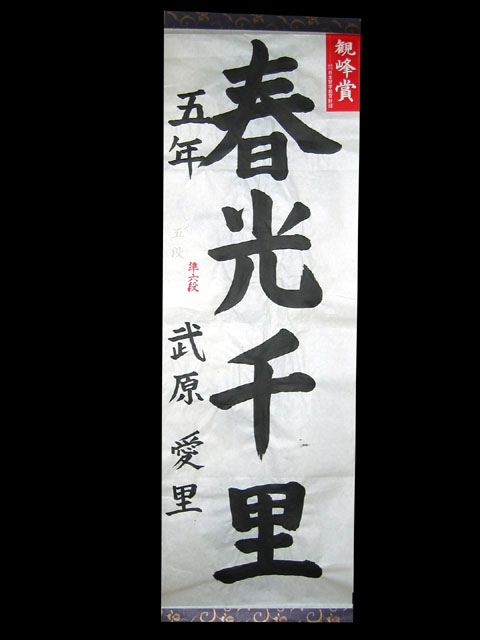 観峰賞
春光千里
五年
五段
準六段
武原愛里